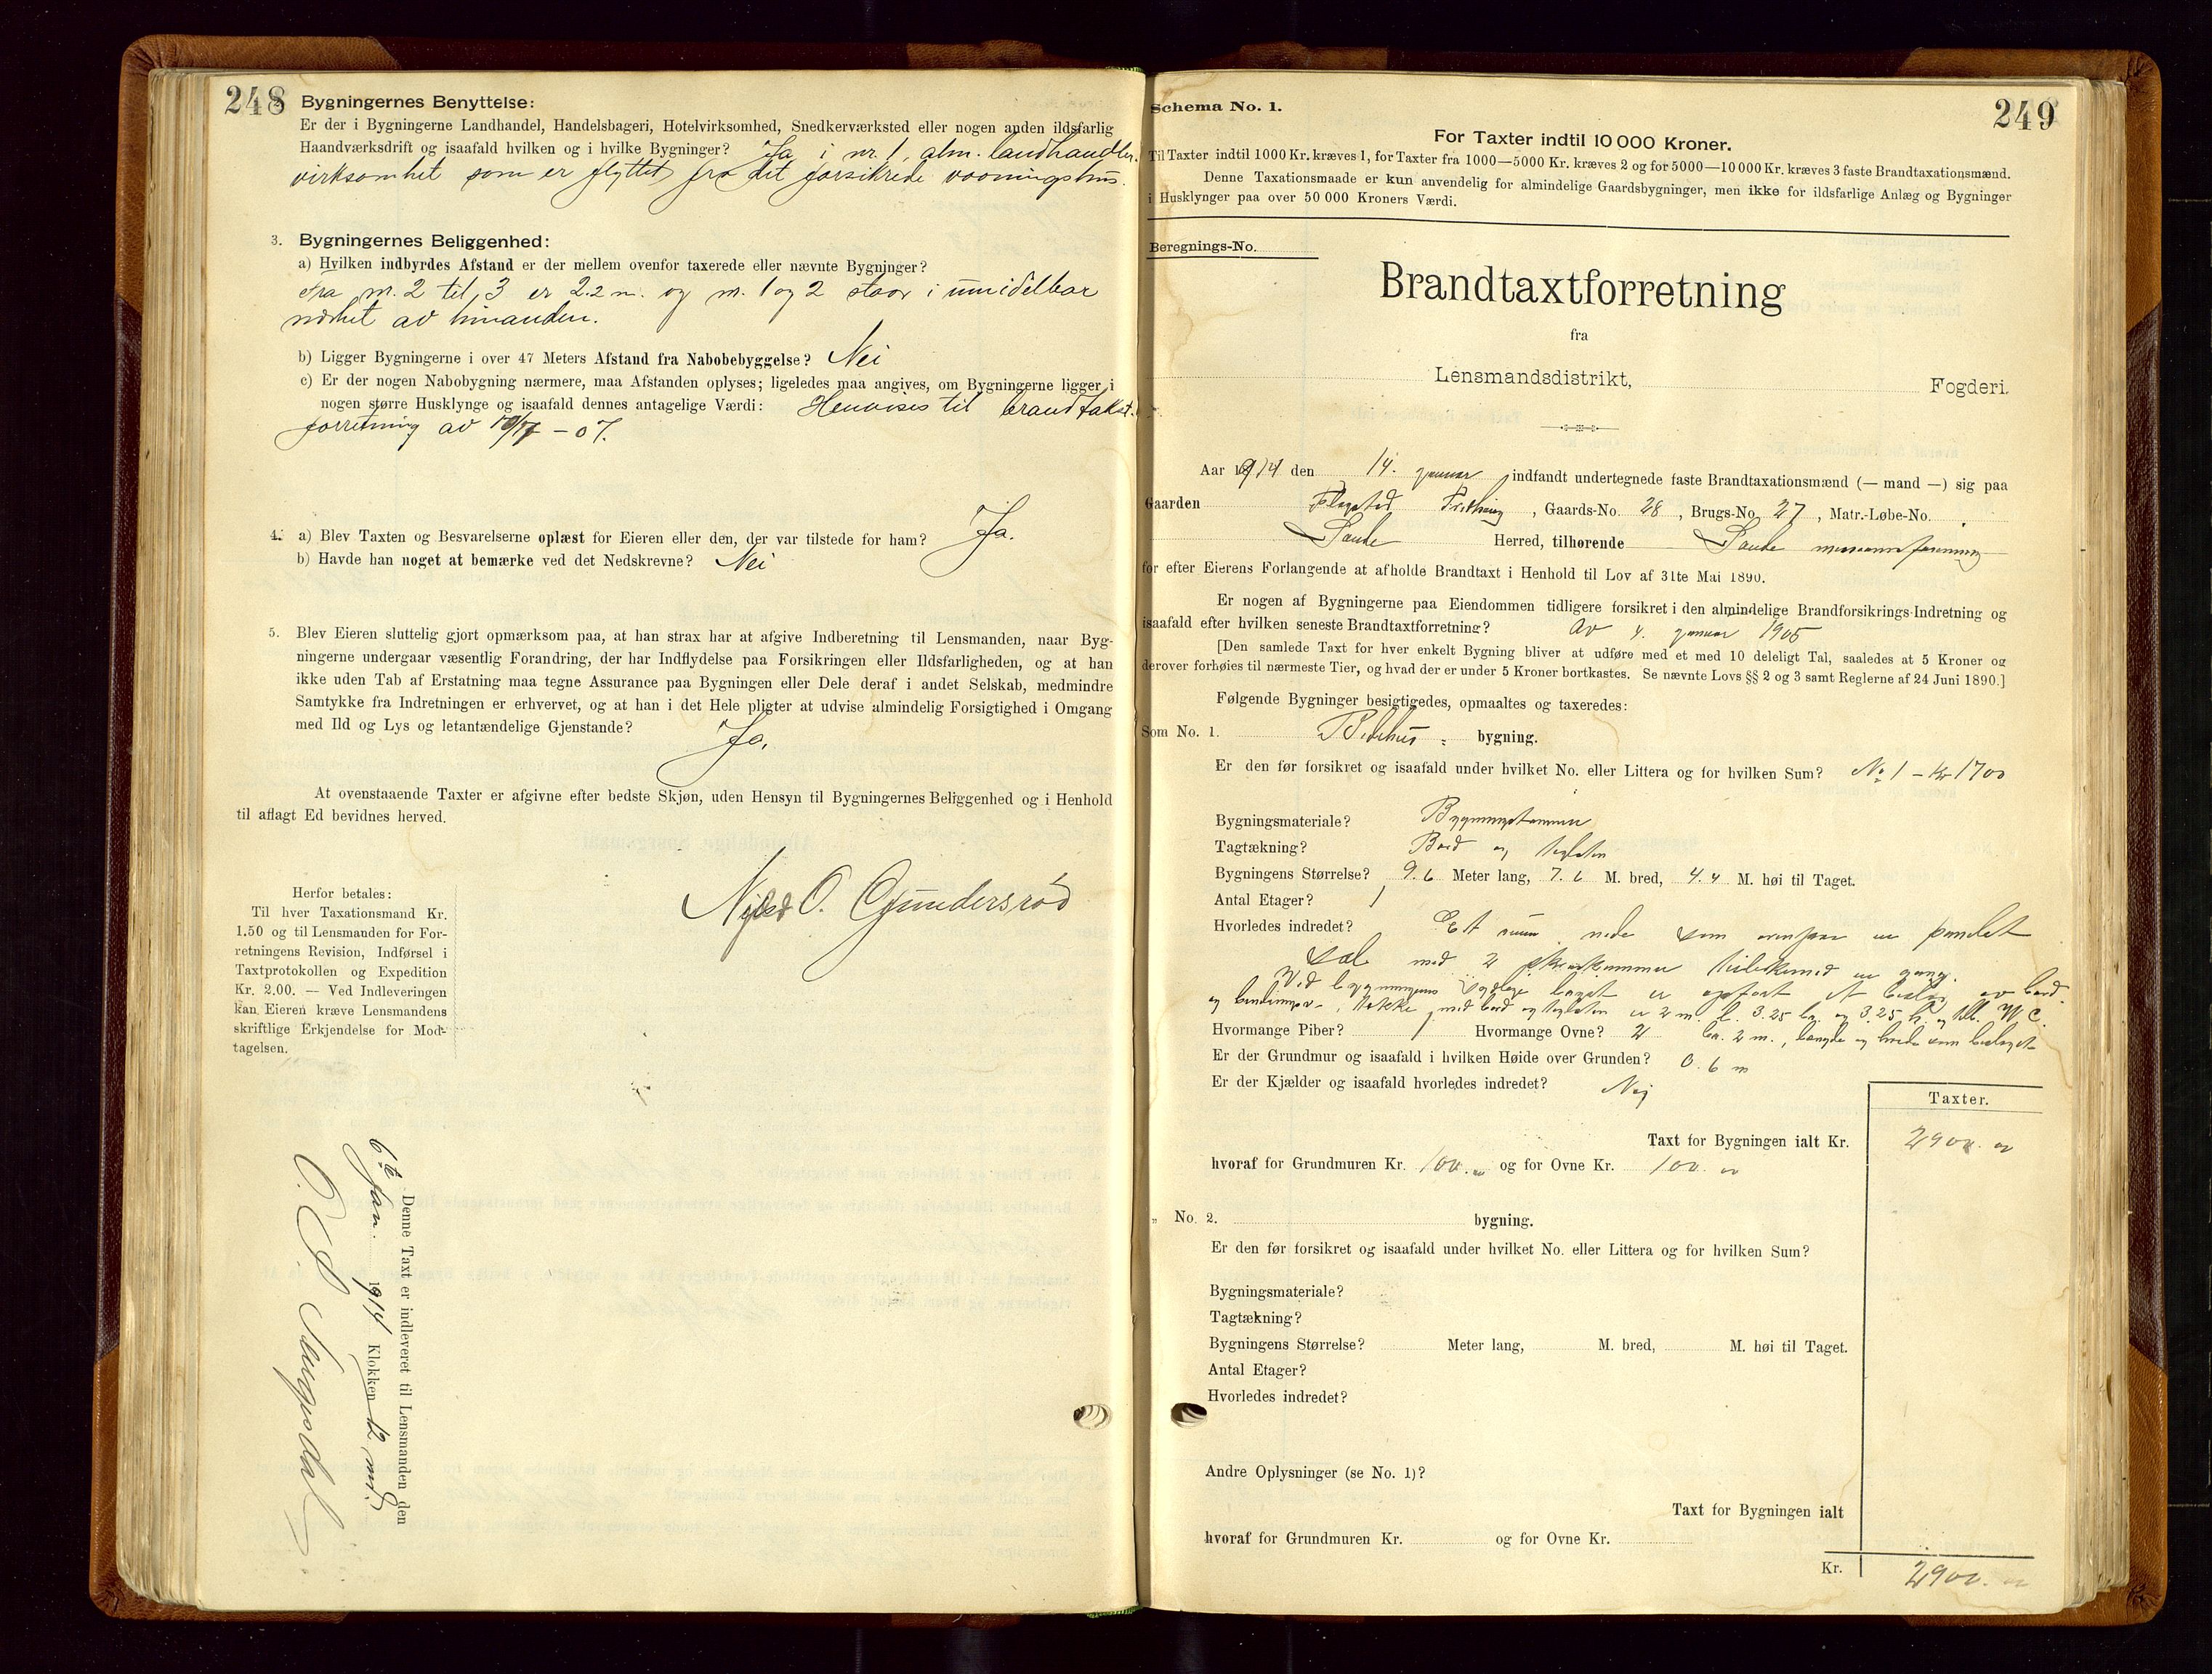 248
Bygningernes Benyttelse:
Er der i Bygningerne Landhandel, Handelsbageri, Hotelvirksomhed, Snedkerværksted eller nogen anden ildsfarlig
Haandværksdrift og isaafald hvilken og i hvilke Bygninger? Ja i nr. 1, alm. landhandler
virksomhet som er flyttet fra det forsikrede vaaningshus.
3. Bygningernes Beliggenhed:
a) Hvilken indbyrdes Afstand er der mellem ovenfor taxerede eller nævnte Bygninger?
Fra nr. 2 til 3 er 2.2 m. og nr. 1 og 2 staar i umidelbar
nærhet av hinanden.
b) Ligger Bygningerne i over 47 Meters Afstand fra Nabobebyggelse? Nei
c) Er der nogen Nabobygning nærmere, maa Afstanden oplyses; ligeledes maa angives, om Bygningerne ligger i
nogen større Husklynge og isaafald dennes antagelige Værdi: Henvises til brandtakst.
forretning av 19/7 – 07.
4. a) Blev Taxten og Besvarelserne oplæst for Eieren eller den, der var tilstede for ham? Ja.
b) Havde han noget at bemærke ved det Nedskrevne? Nei
5. Blev Eieren sluttelig gjort opmærksom paa, at han strax har at afgive Indberetning til Lensmanden, naar Byg-
ningerne undergaar væsentlig Forandring, der har Indflydelse paa Forsikringen eller Ildsfarligheden, og at han
ikke uden Tab af Erstatning maa tegne Assurance paa Bygningen eller Dele deraf i andet Selskab, medmindre
Samtykke fra Indretningen er erhvervet, og at han i det Hele pligter at udvise almindelig Forsigtighed i Omgang
med Ild og Lys og letantændelige Gjenstande? Ja.
At ovenstaaende Taxter er afgivne efter bedste Skjøn, uden Hensyn til Bygningernes Beliggenhed og i Henhold
til aflagt Ed bevidnes herved.
O. Gundersrød
Herfor betales:
Til hver Taxationsmand Kr.
1.50 og til Lensmanden for For-
retningens Revision, Indførsel i
Taxtprotokollen og Expedition
Kr. 2.00. — Ved Indleveringen
kan Eieren kræve Lensmandens
skriftlige Erkjendelse for Mod-
tagelsen.
Denne Taxt er indleveret til Lensmanden den
6te Jan. 1914 Klokken 12 mid.
O. S.
249
Schema No. 1.
For Taxter indtil 10 000 Kroner.
Til Taxter indtil 1000 Kr. kræves 1, for Taxter fra 1000—5000 Kr. kræves 2 og for 5000—10 000 Kr. kræves 3 faste Brandtaxationsmænd.
Denne Taxationsmaade er kun anvendelig for almindelige Gaardsbygninger, men ikke for ildsfarlige Anlæg og Bygninger
i Husklynger paa over 50 000 Kroners Værdi.
Beregnings-No.
Brandtaxtforretning
fra
Lensmandsdistrikt, Fogderi.
Aar 1914 den 14. januar indfandt undertegnede faste Brandtaxationsmænd (— mand —) sig paa
Gaarden , Gaards-No. 28 , Brugs-No. 27 , Matr.-Løbe-No.
Sande Herred, tilhørende Sande
for efter Eierens Forlangende at afholde Brandtaxt i Henhold til Lov af 31te Mai 1890.
Er nogen af Bygningerne paa Eiendommen tidligere forsikret i den almindelige Brandforsikrings-Indretning og
isaafald efter hvilken seneste Brandtaxtforretning? Av 4. januar 1905
[Den samlede Taxt for hver enkelt Bygning bliver at udføre med et med 10 deleligt Tal, saaledes at 5 Kroner og
derover forhøies til nærmeste Tier, og hvad der er under 5 Kroner bortkastes. Se nævnte Lovs §§ 2 og 3 samt Reglerne af 24 Juni 1890.]
Følgende Bygninger besigtigedes, opmaaltes og taxeredes:
Som No. 1. Bedehus bygning.
Er den før forsikret og isaafald under hvilket No. eller Littera og for hvilken Sum? No 1 – Kr 1700
Bygningsmateriale? Bygningstømmer
Tagtækning? Bord og teglsten
Bygningens Størrelse? 9.6 Meter lang, 7.6 M. bred, 4.4 M. høi til Taget.
Antal Etager? 1
Hvorledes indredet? Et rum nede som er panelet
sal med 2 en gang.
Ved bygningens er opført et av bord
og , tække med bord og teglsten er 2 m. l. 3.25 br. og 3.25 h. W C.
Hvormange Piber? 1 Hvormange Ovne? 2 2 m., længde og brede som
Er der Grundmur og isaafald i hvilken Høide over Grunden? 0.6 m
Er der Kjælder og isaafald hvorledes indredet? Nei
Taxter.
Taxt for Bygningen ialt Kr. 2900.
hvoraf for Grundmuren Kr. 100. og for Ovne Kr. 100.
„ No. 2. bygning.
Er den før forsikret og isaafald under hvilket No. eller Littera og for hvilken Sum?
Bygningsmateriale?
Tagtækning?
Bygningens Størrelse? Meter lang, M. bred, M. høi til Taget.
Antal Etager?
Hvorledes indredet?
Andre Oplysninger (se No. 1)?
Taxt for Bygningen ialt
hvoraf for Grundmuren Kr. og for Ovne Kr.
Kr. 2900.